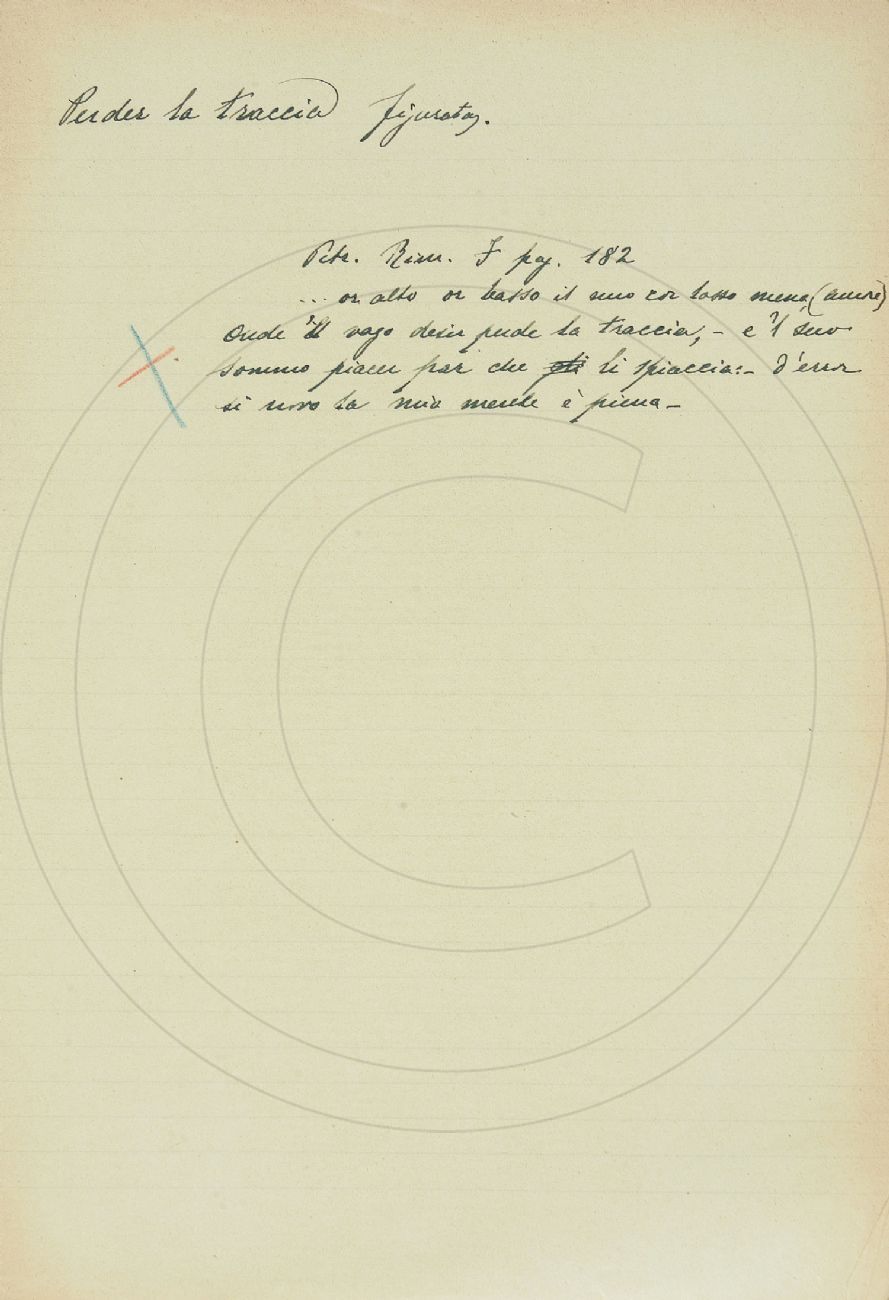 Perder la traccia figurato.
Petr. Rim. I pag. 182
... or alto or basso il mio cor lasso mena (amore)
Onde 'l vago desir perde la traccia, - e 'l suo
sommo piacer par che li spiaccia: - d'error
sì novo la mia mente è piena -